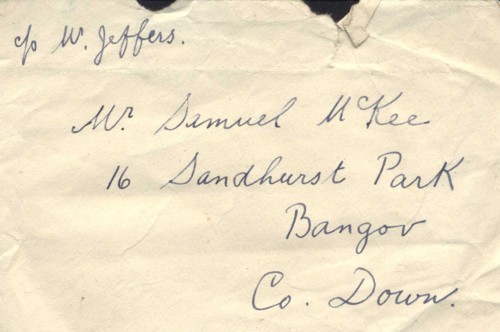 c/o W. Jeffers.
Mr. Samuel McKee
16 Sandhurst Park
Bangor
Co. Down.